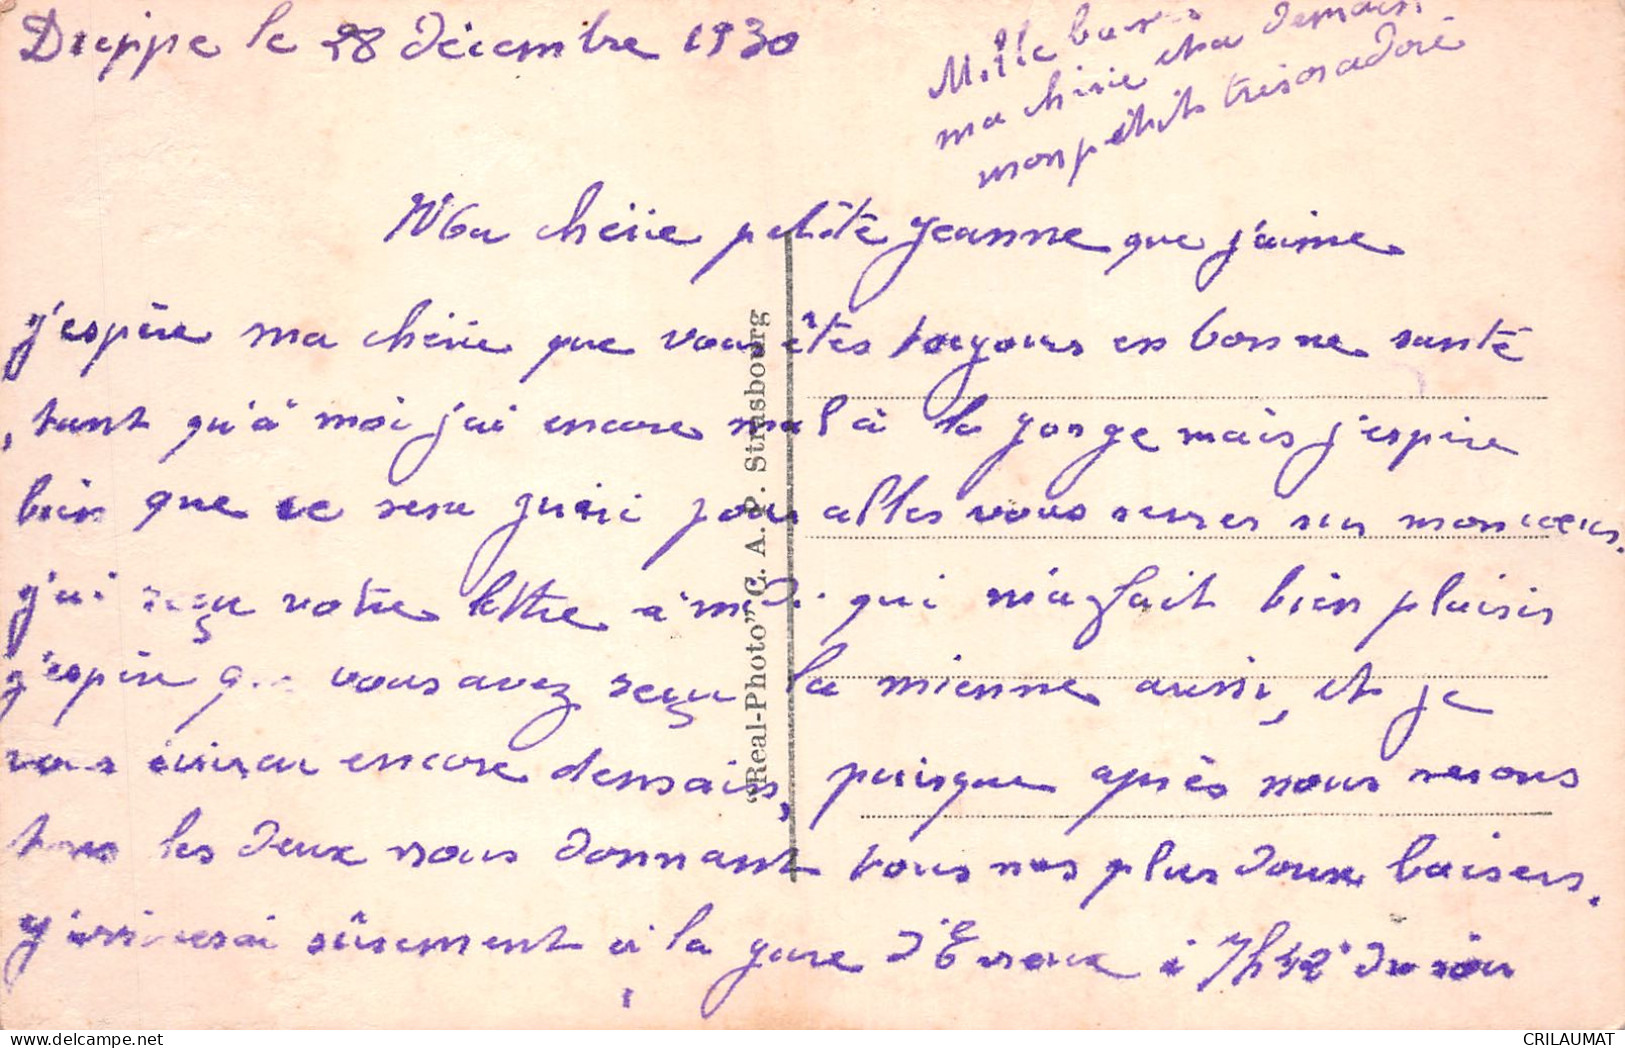 Dieppe le 28 décembre 1930
Mille baisers
ma chérie et a demain
mon petit trésor adoré
Ma chérie petite Jeanne que j'aime
j'espère ma chérie que vous êtes toujours en bonne santé
, tant qu'à moi j'ai encore mal à la gorge mais j'espère
bien que ce sera guéri pour aller vous serrer sur mon coeur.
j'ai reçu votre lettre à midi qui m'a fait bien plaisir
j'espère que vous avez reçu la mienne aussi, et je
vous écrirai encore demain, puisque après nous serons
tous les deux nous donnant tous nos plus doux baisers.
j'arriverai sûrement à la gare d'Evreux à 7h42 du soir
"Real-Photo" C. A. P. Strasbourg
CRILAUMAT